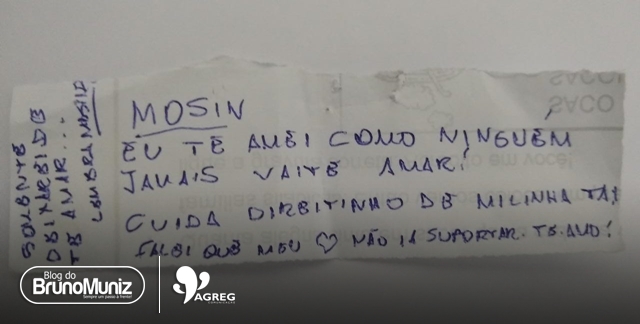 MOSIN
EU TE AMEI COMO NINGUÉM
JAMAIS VAI TE AMAR!
CUIDA DIREITINHO DE MILINHA TÁ!
FALEI QUE MEU ♡ NÃO IA SUPORTAR. TE AMO!
SOMENTE
DEIXAREI DE
TE AMAR...
LEMBRA
SACO
SACO
Blog do
BrunoMuniz
Sempre um passo à frente!
AGREG
COMUNICAÇÃO